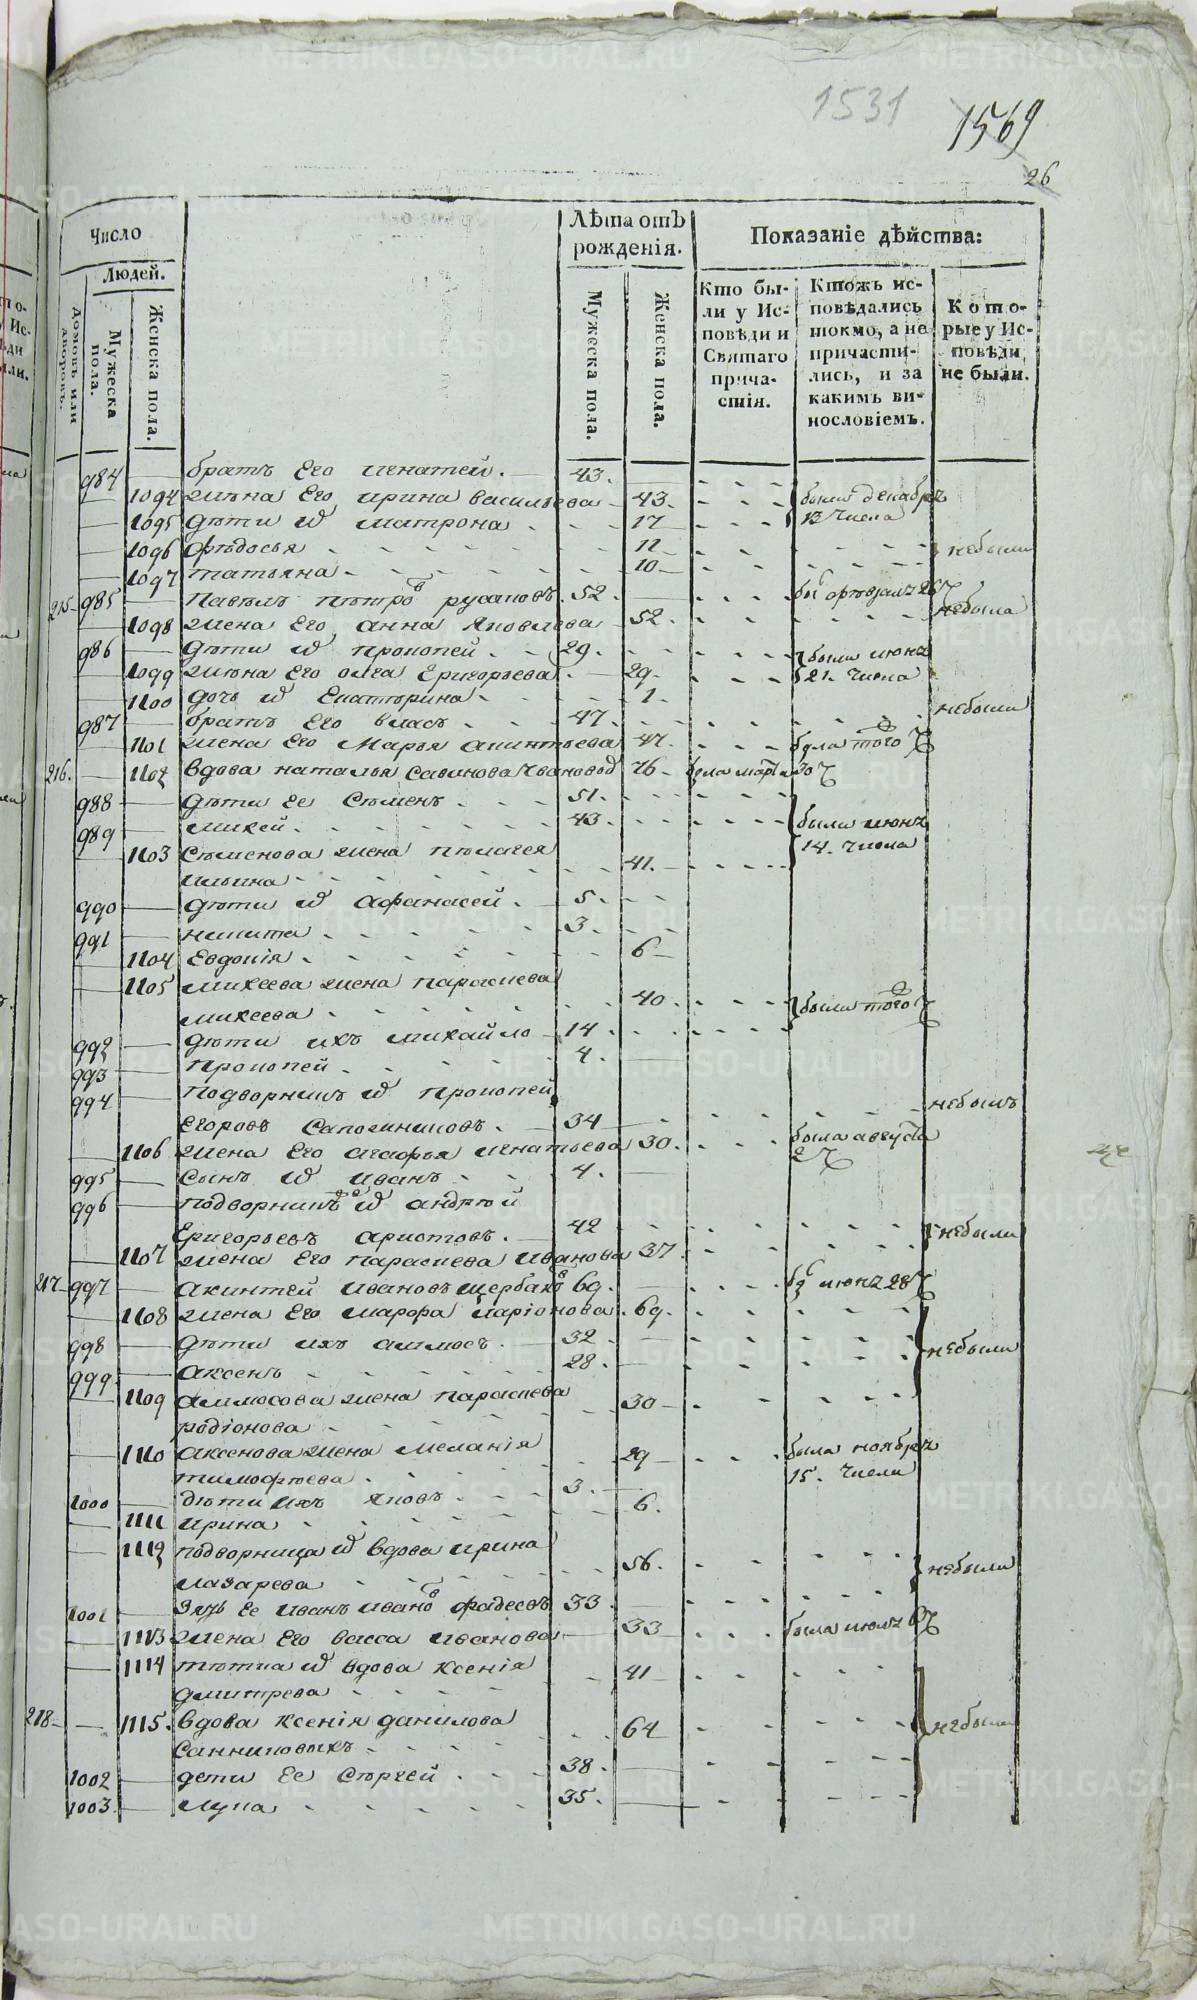 1531
1569
26
Число
Людей.
Домовъ или дворовъ.
Мужеска пола.
Женска пола.
Лѣта отъ рожденія.
Мужеска пола.
Женска пола.
Показаніе дѣйства:
Кто были у Исповѣди и Святаго причастія.
Ктожъ исповѣдались токмо, а не причастились, и за какимъ винословіемъ.
Которые у Исповѣди не были.
984 — братъ его игнатей. 43.
1094 жена его ирина васильева 43. были декабря
1095 дѣти и̃ матрона 17 13 числа
1096 фѣдосья 11 небыли
1097 татьяна 10
215 985 — Павѣлъ пѣтровъ русановъ 52.
1098 жена его анна яковлева 52. небыла
986 — дѣти и̃ прокопей 29. были июня
1099 жена его олга григорьева 29. 21. числа
1100 дочь и̃ Екатѣрина 1.
987 — братъ его власъ 47. небыли
1101 жена его Марья акинтьева 47. была того ч
216. 1102 вдова наталья савинова 76 была мар 30 ч
988 — дѣти ее Сѣменъ 51.
989 — микей 43. были июня
1103 Сѣменова жена пѣлагея 14. числа
ильина 41.
990 — дѣти и̃ афанасей. 5.
991 — никита 3.
1104 Евдокія 6
1105 микеева жена параскева
микеева 40. были того ч
992 — дѣти ихъ михайло 14.
993 — прокопей 4.
994 — подворникъ и̃ прокопей небылъ
Егоровъ Сапогинниковъ. 34
1106 жена его агафья игнатьева 30. была августа
2 ч
995 — сынъ и̃ иванъ 4.
996 — подворникъ и̃ андрѣй
Григорьевъ аристовъ. 42 небыли
1107 жена его параскева иванова 37.
217 997 — акинтей ивановъ щербаковъ 69. бы июня 28 ч
1108 жена его марфа ларіонова 69.
998 — дѣти ихъ аммосъ. 32 небыли
999 — аксенъ 28.
1109 аммосова жена параскева 30
родіонова
1110 аксенова жена меланія 29 была ноября
тимофѣева 15. числа
1000 — дѣти ихъ яковъ 3.
1111 ирина 6.
1112 подворница и̃ вдова ирина
лазарева 56. небыли
1001 — зять ее иванъ ивановъ фадеевъ 33
1113 жена его васса иванова 33 была июля 6 ч
1114 тѣтка и̃ вдова ксенія 41
дмитрева
218 1115. вдова ксенія данилова 64 небыли
Санниковыхъ
1002 — дети ее Сѣргей 38.
1003. — лука 35.